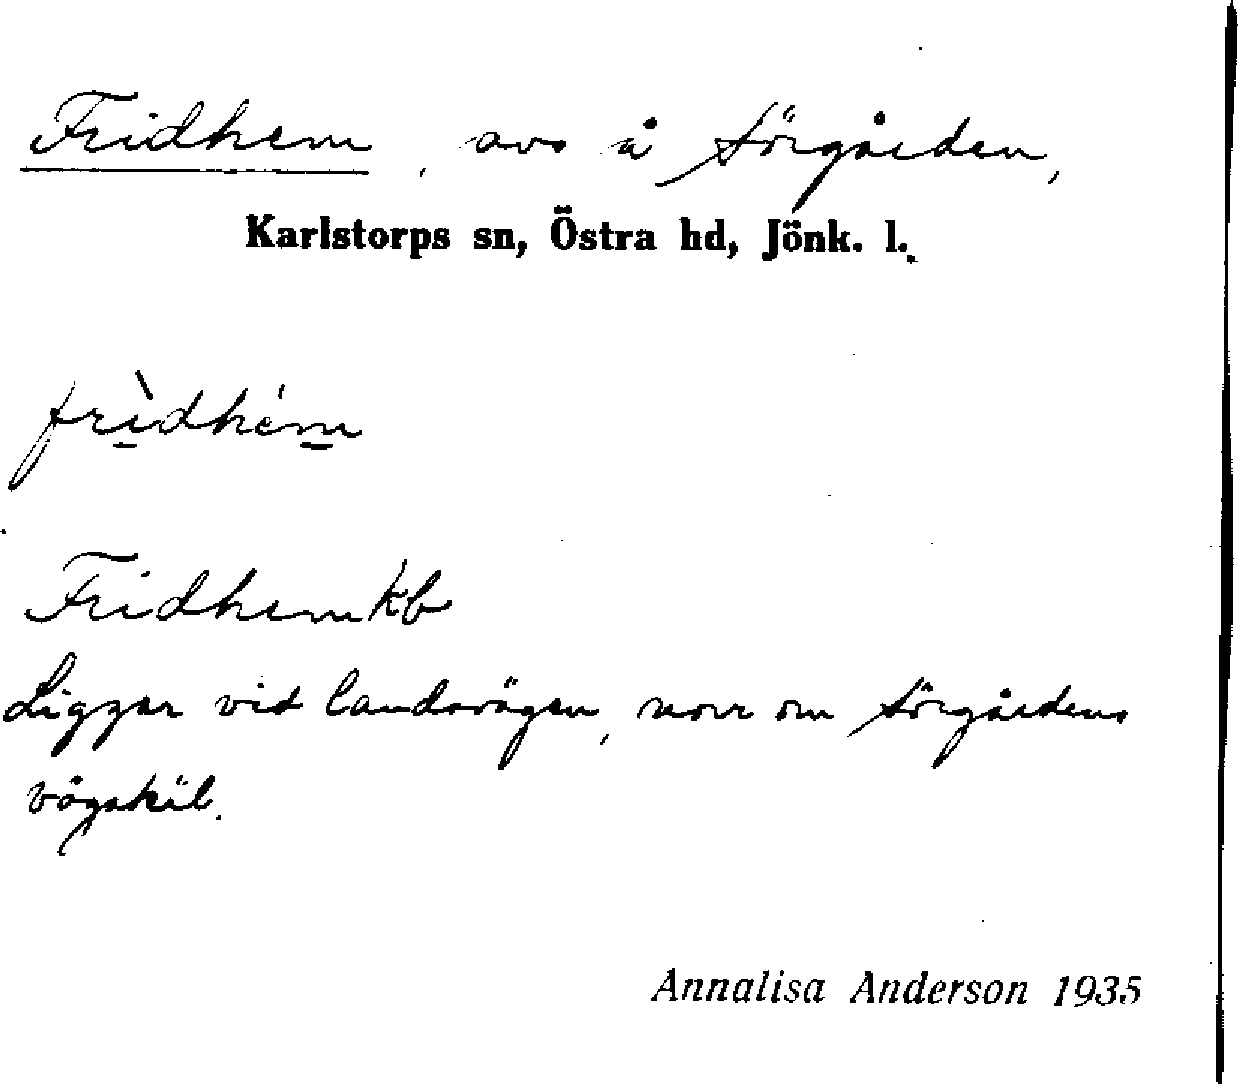 Fridhem, avs å Sörgården,
Karlstorps sn, Östra hd, Jönk. l.
frì̲dhém̲
Fridhem kb
Ligger vid landsvägen, norr om Sörgårdens
vägskäl.
Annalisa Anderson 1935